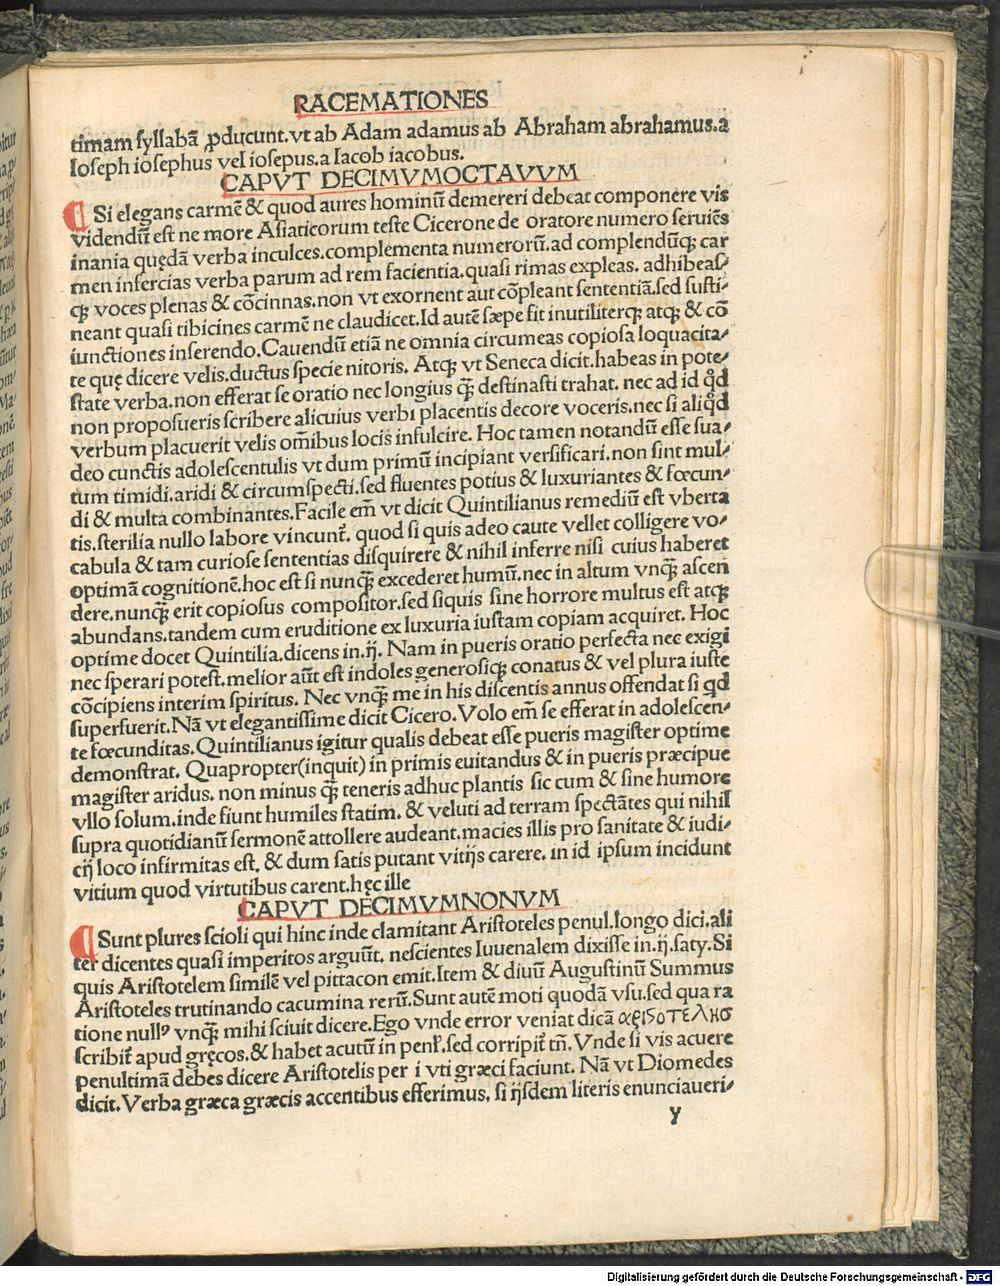 RACEMATIONES
timam syllabā ꝓducunt.vt ab Adam adamus ab Abraham abrahamus.a
Ioseph iosephus vel iosepus.a Iacob iacobus.
CAPVT DECIMVMOCTAVVM
Si elegans carmē & quod aures hominū demereri debeat componere vis
videndū est ne more Asiaticorum teste Cicerone de oratore numero seruiēs
inania quędā verba inculces.complementa numerorū.ad complendūq; car
men infercias verba parum ad rem facientia.quasi rimas expleas. adhibeas⸗
q; voces plenas & cōcinnas.non vt exornent aut cōpleant sententiā.sed susti⸗
neant quasi tibicines carmē ne claudicet.Id autē sæpe fit inutiliterq; atq; & cō
iunctiones inserendo.Cauendū etiā ne omnia circumeas copiosa loquacita⸗
te quę dicere velis.ductus specie nitoris. Atq; vt Seneca dicit.habeas in pote⸗
state verba.non efferat se oratio nec longius q̄; destinasti trahat. nec ad id qd̄
non proposueris scribere alicuius verbi placentis decore voceris.nec si aliqd̄
verbum placuerit velis om̄ibus locis infulcire. Hoc tamen notandū esse sua⸗
deo cunctis adolescentulis vt dum primū incipiant versificari.non sint mul⸗
tum timidi.aridi & circumspecti.sed fluentes potius & luxuriantes & fœcun⸗
di & multa combinantes.Facile em̄ vt dicit Quintilianus remediū est vberta
tis.sterilia nullo labore vincunt̄. quod si quis adeo caute vellet colligere vo⸗
cabula & tam curiose sententias disquirere & nihil inferre nisi cuius haberet
optimā cognitionē.hoc est si nunq̄; excederet humū.nec in altum vnq̄; ascen
dere.nunq̄; erit copiosus compositor.sed siquis sine horrore multus est atq;
abundans.tandem cum eruditione ex luxuria iustam copiam acquiret. Hoc
optime docet Quintilia.dicens in.ij. Nam in pueris oratio perfecta nec exigi
nec sperari potest.melior aūt est indoles generosiq; conatus & vel plura iuste
cōcipiens interim spiritus. Nec vnq̄; me in his discentis annus offendat si qd
superfuerit.Nā vt elegantissime dicit Cicero.Volo em̄ se efferat in adolescen⸗
te fœcunditas.Quintilianus igitur qualis debeat esse pueris magister optime
demonstrat. Quapropter(inquit) in primis euitandus & in pueris præcipue
magister aridus. non minus q̄; teneris adhuc plantis sic cum & sine humore
vllo solum.inde fiunt humiles statim. & veluti ad terram spectātes qui nihil
supra quotidianū sermonē attollere audeant.macies illis pro sanitate & iudi⸗
cij loco infirmitas est. & dum satis putant vitijs carere. in id ipsum incidunt
vitium quod virtutibus carent.hęc ille
CAPVT DECIMVMNONVM
Sunt plures scioli qui hinc inde clamitant Aristoteles penul.longo dici.ali
ter dicentes quasi imperitos arguūt. nescientes Iuuenalem dixisse in.ij.saty.Si
quis Aristotelem similē vel pittacon emit.Item & diuū Augustinū Summus
Aristoteles trutinando cacumina rerū.Sunt autē moti quodā vsu.sed qua ra
tione nullꝰ vnq̄; mihi sciuit dicere.Ego vnde error veniat dicā αριϛοτελησ
scribit̄ apud gręcos.& habet acutū in penl̄.sed corripit̄ tn̄. Vnde si vis acuere
penultimā debes dicere Aristotelis per i vti græci faciunt. Nā vt Diomedes
dicit.Verba græca græcis accentibus efferimus. si ijsdem literis enunciaueri⸗
y
Digitalisierung gefördert durch die Deutsche Forschungsgemeinschaft - DFG